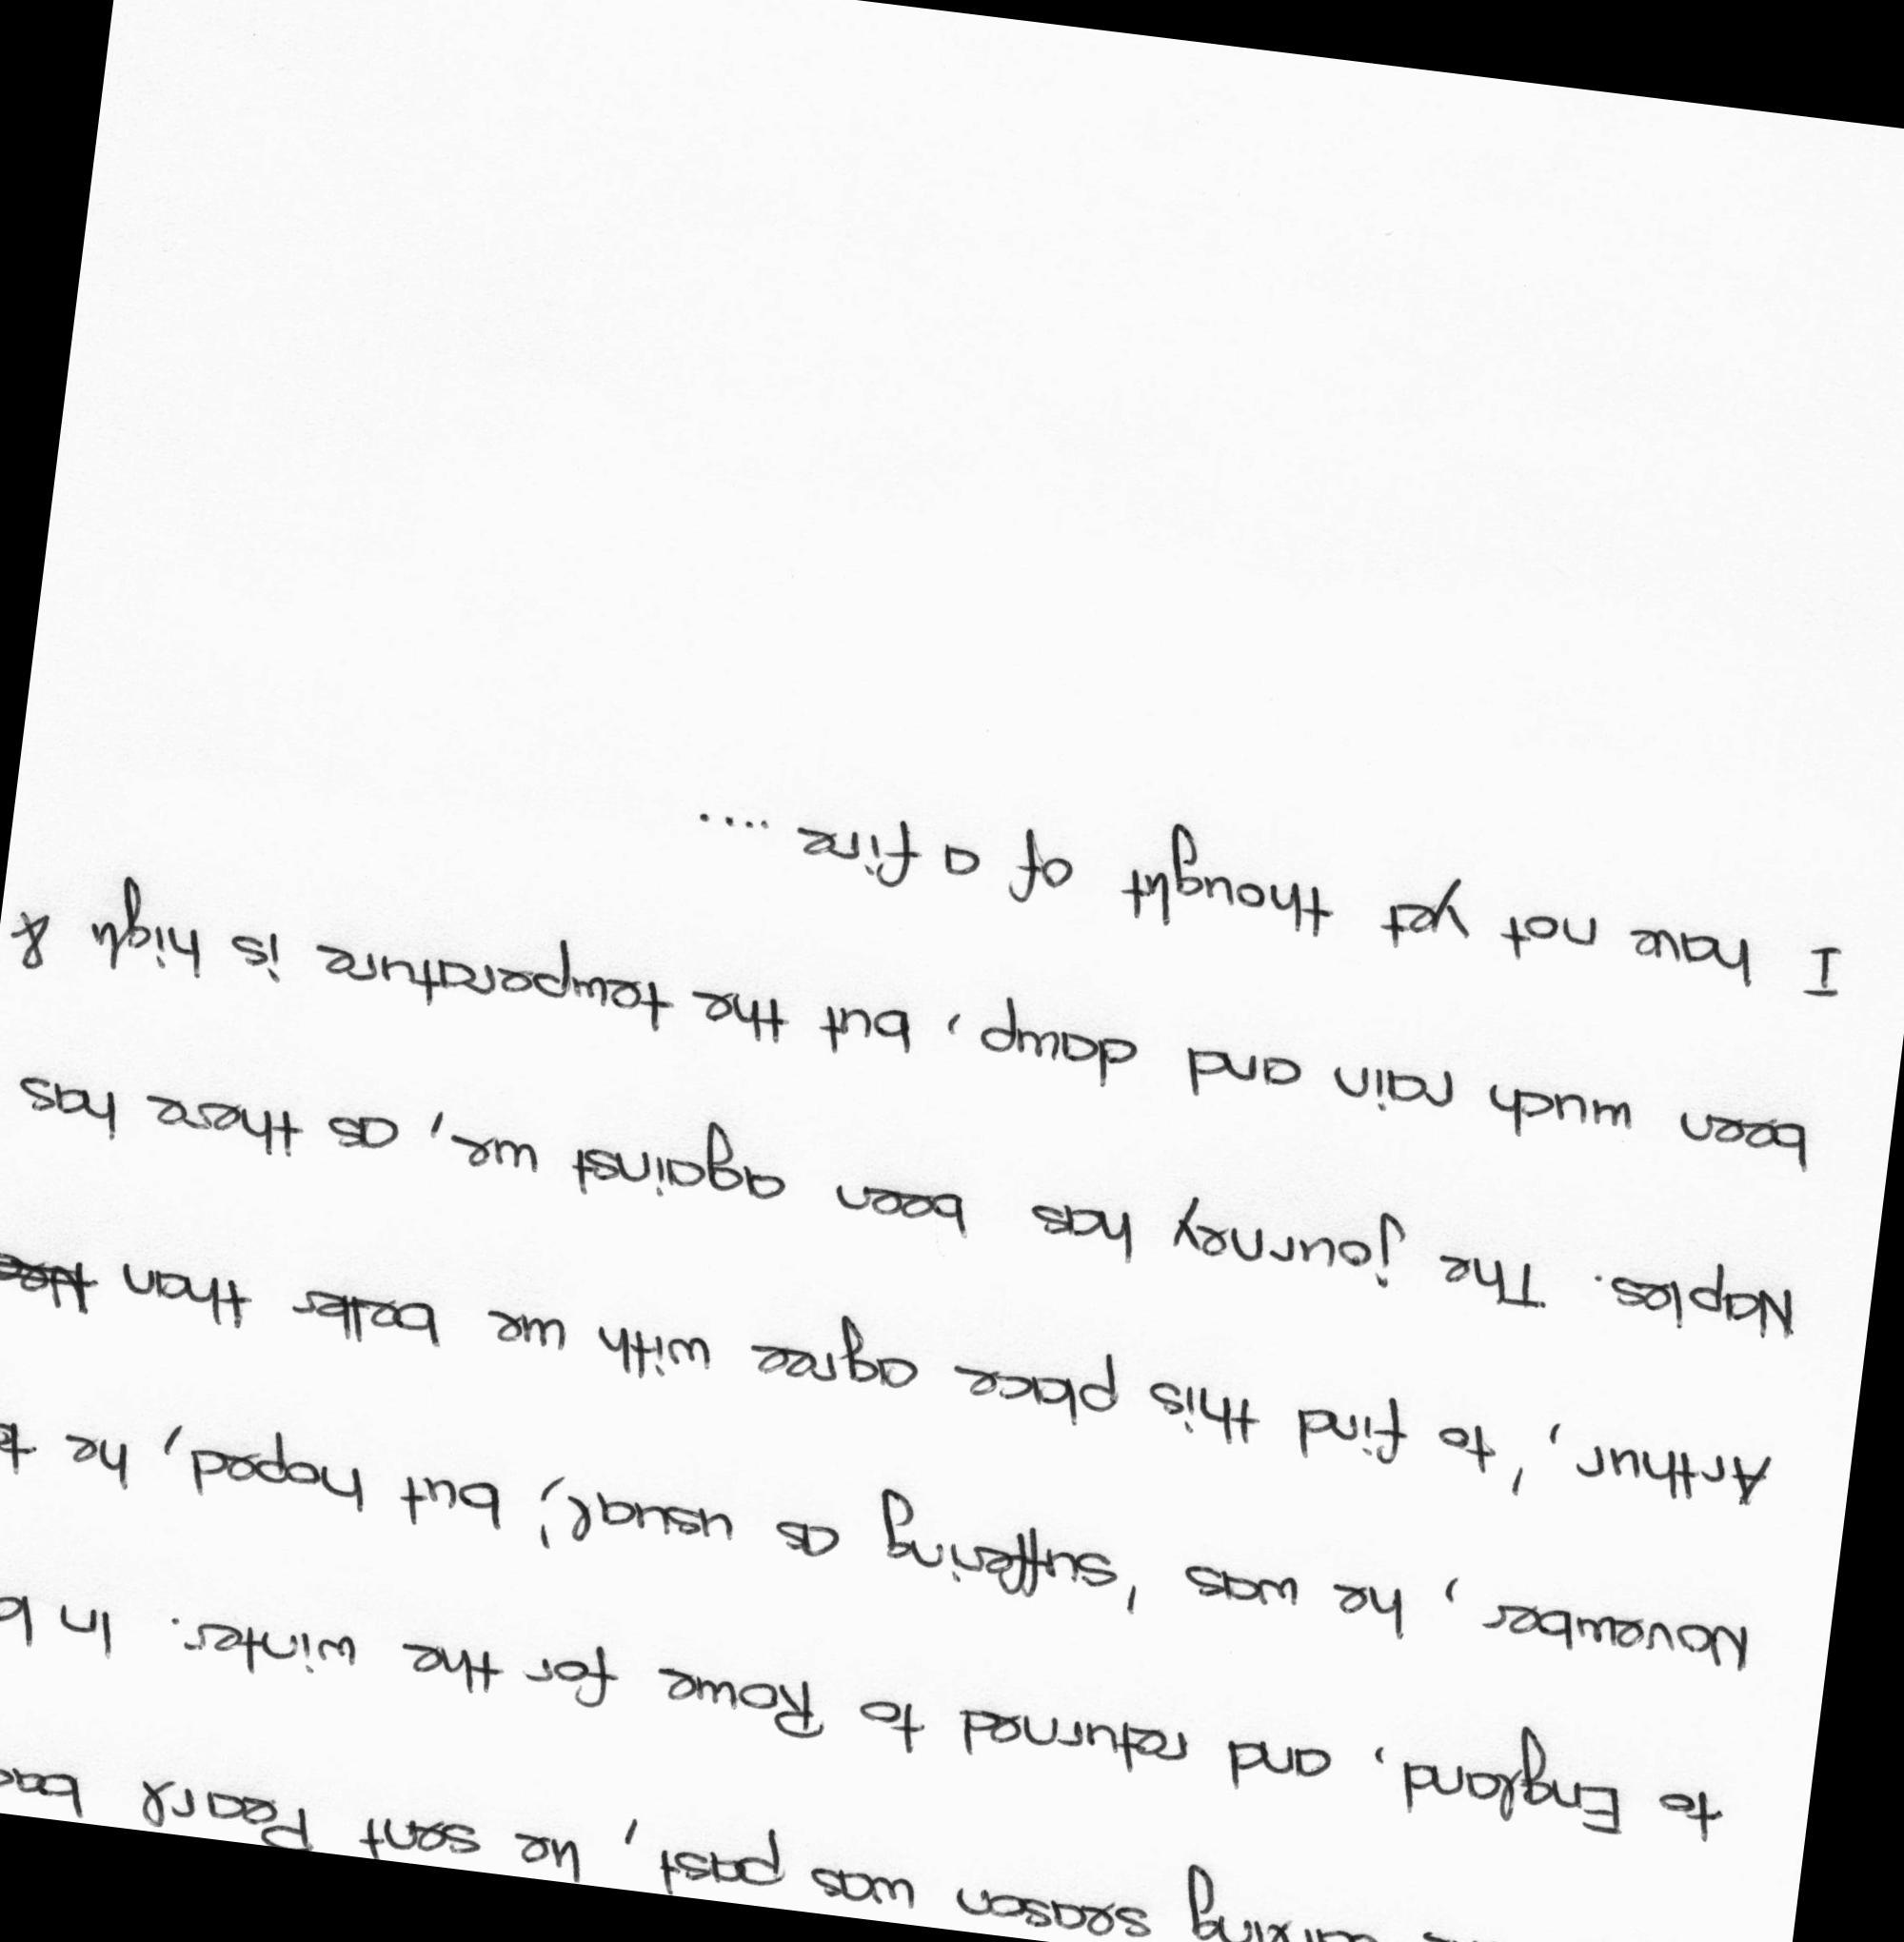 season was past, he sent Pearl
to England, and returned to Rome for the winter. In
November, he was 'suffering as usual', but hoped, he
Arthur, 'to find this place agree with me better than
Naples. The journey has been against me, as there has
been much rain and damp, but the temperature is high &
I have not yet thought of a fire ....